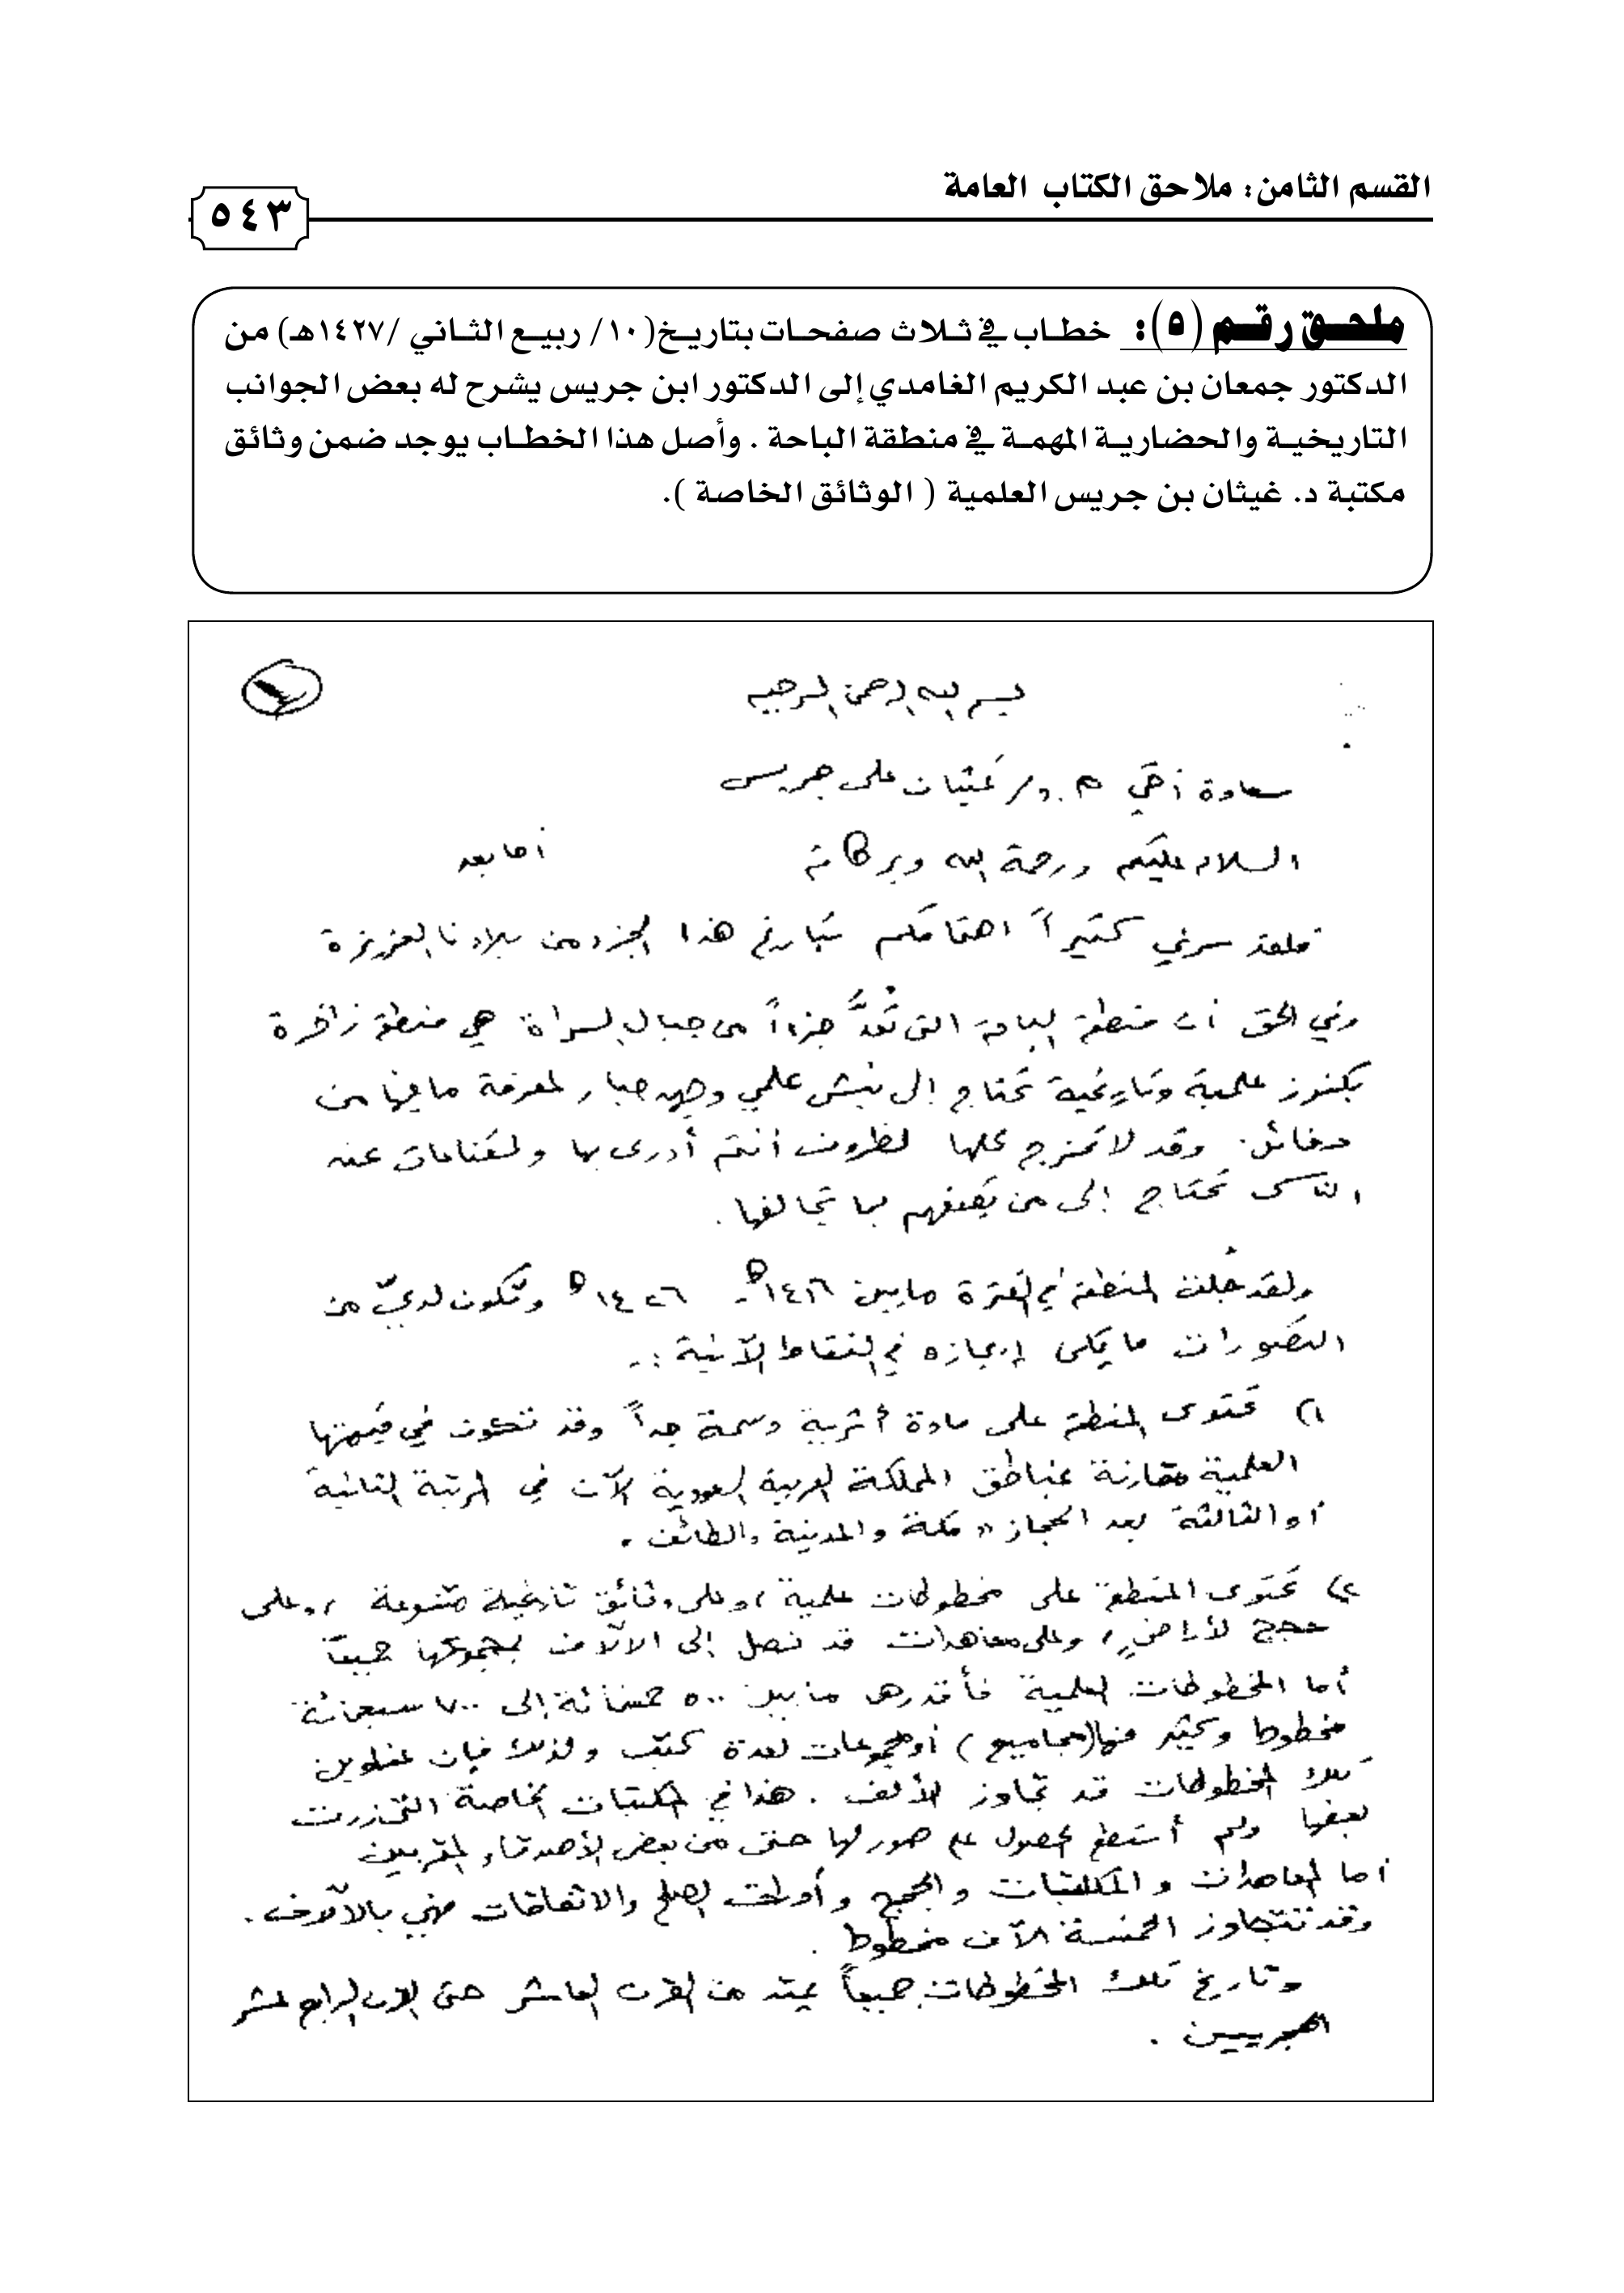 القسم الثامن: ملاحق الكتاب العامة
٥٤٣
ملحق رقم (٥): خطاب في ثلاث صفحات بتاريخ (١٠/ ربيع الثاني /١٤٢٧هـ) من
الدكتور جمعان بن عبد الكريم الغامدي إلى الدكتور ابن جريس يشرح له بعض الجوانب
التاريخية والحضارية المهمة في منطقة الباحة . وأصل هذا الخطاب يوجد ضمن وثائق
مكتبة د. غيثان بن جريس العلمية ( الوثائق الخاصة ).
بسم الله الرحمن الرحيم
سعادة أخي د/ غيثان علي جريس
السلام عليكم ورحمة الله وبركاته أما بعد
فلقد سرني كثيراً اهتمامكم بتاريخ هذا الجزء من بلادنا العزيزة
وفي الحق أن منطقة الباحة التي تُعدُّ جزءاً من جبال السراة هي منطقة زاخرة
بكنوز علمية وتاريخية تحتاج إلى نبش علمي وجهد جبار لمعرفة ما فيها من
دفائن. وقد لا تخرج كلها لظروف أنتم أدرى بها ولقناعات عند
الناس تحتاج إلى من يقنعهم بما يخالفها .
ولقد جُلت المنطقة في الفترة ما بين ١٤١٦هـ - ١٤٢٦هـ وتكون لديّ من
التصورات ما يمكن إيجازه في النقاط الآتية :-
١) تحتوى المنطقة على مادة أثرية دسمة جداً وقد تكون في قيمتها
العلمية مقارنة بمناطق المملكة العربية السعودية الآن في المرتبة الثانية
أو الثالثة بعد الحجاز " مكة والمدينة والطائف .
٢) تحتوى المنطقة على مخطوطات علمية ، وعلى وثائق تاريخية متنوعة ، وعلى
حجج لأراضٍ ، وعلى معاهدات قد تصل إلى الآلاف بمجموعها جميعاً
أما المخطوطات العلمية فأقدرها ما بين ٥٠٠ خمسمائة إلى ٧٠٠ سبعمائة
مخطوط وكثير منها (مجاميع ) أو مجموعات لعدة كتب ولذلك فإن عناوين
تلك المخطوطات قد تجاوز الألف . هذا في المكتبات الخاصة التي زرت
بعضها ولم أستطع الحصول على صور لها حتى من بعض الأصدقاء المقربين
أما المعاهدات و المكاتبات والحجج وأوراق الصلح والاتفاقات فهي بالآلاف .
وقد تتجاوز الخمسة الآف مخطوط .
وتاريخ تلك المخطوطات جميعاً يمتد من القرن العاشر حتى القرن الرابع عشر
الهجريين .